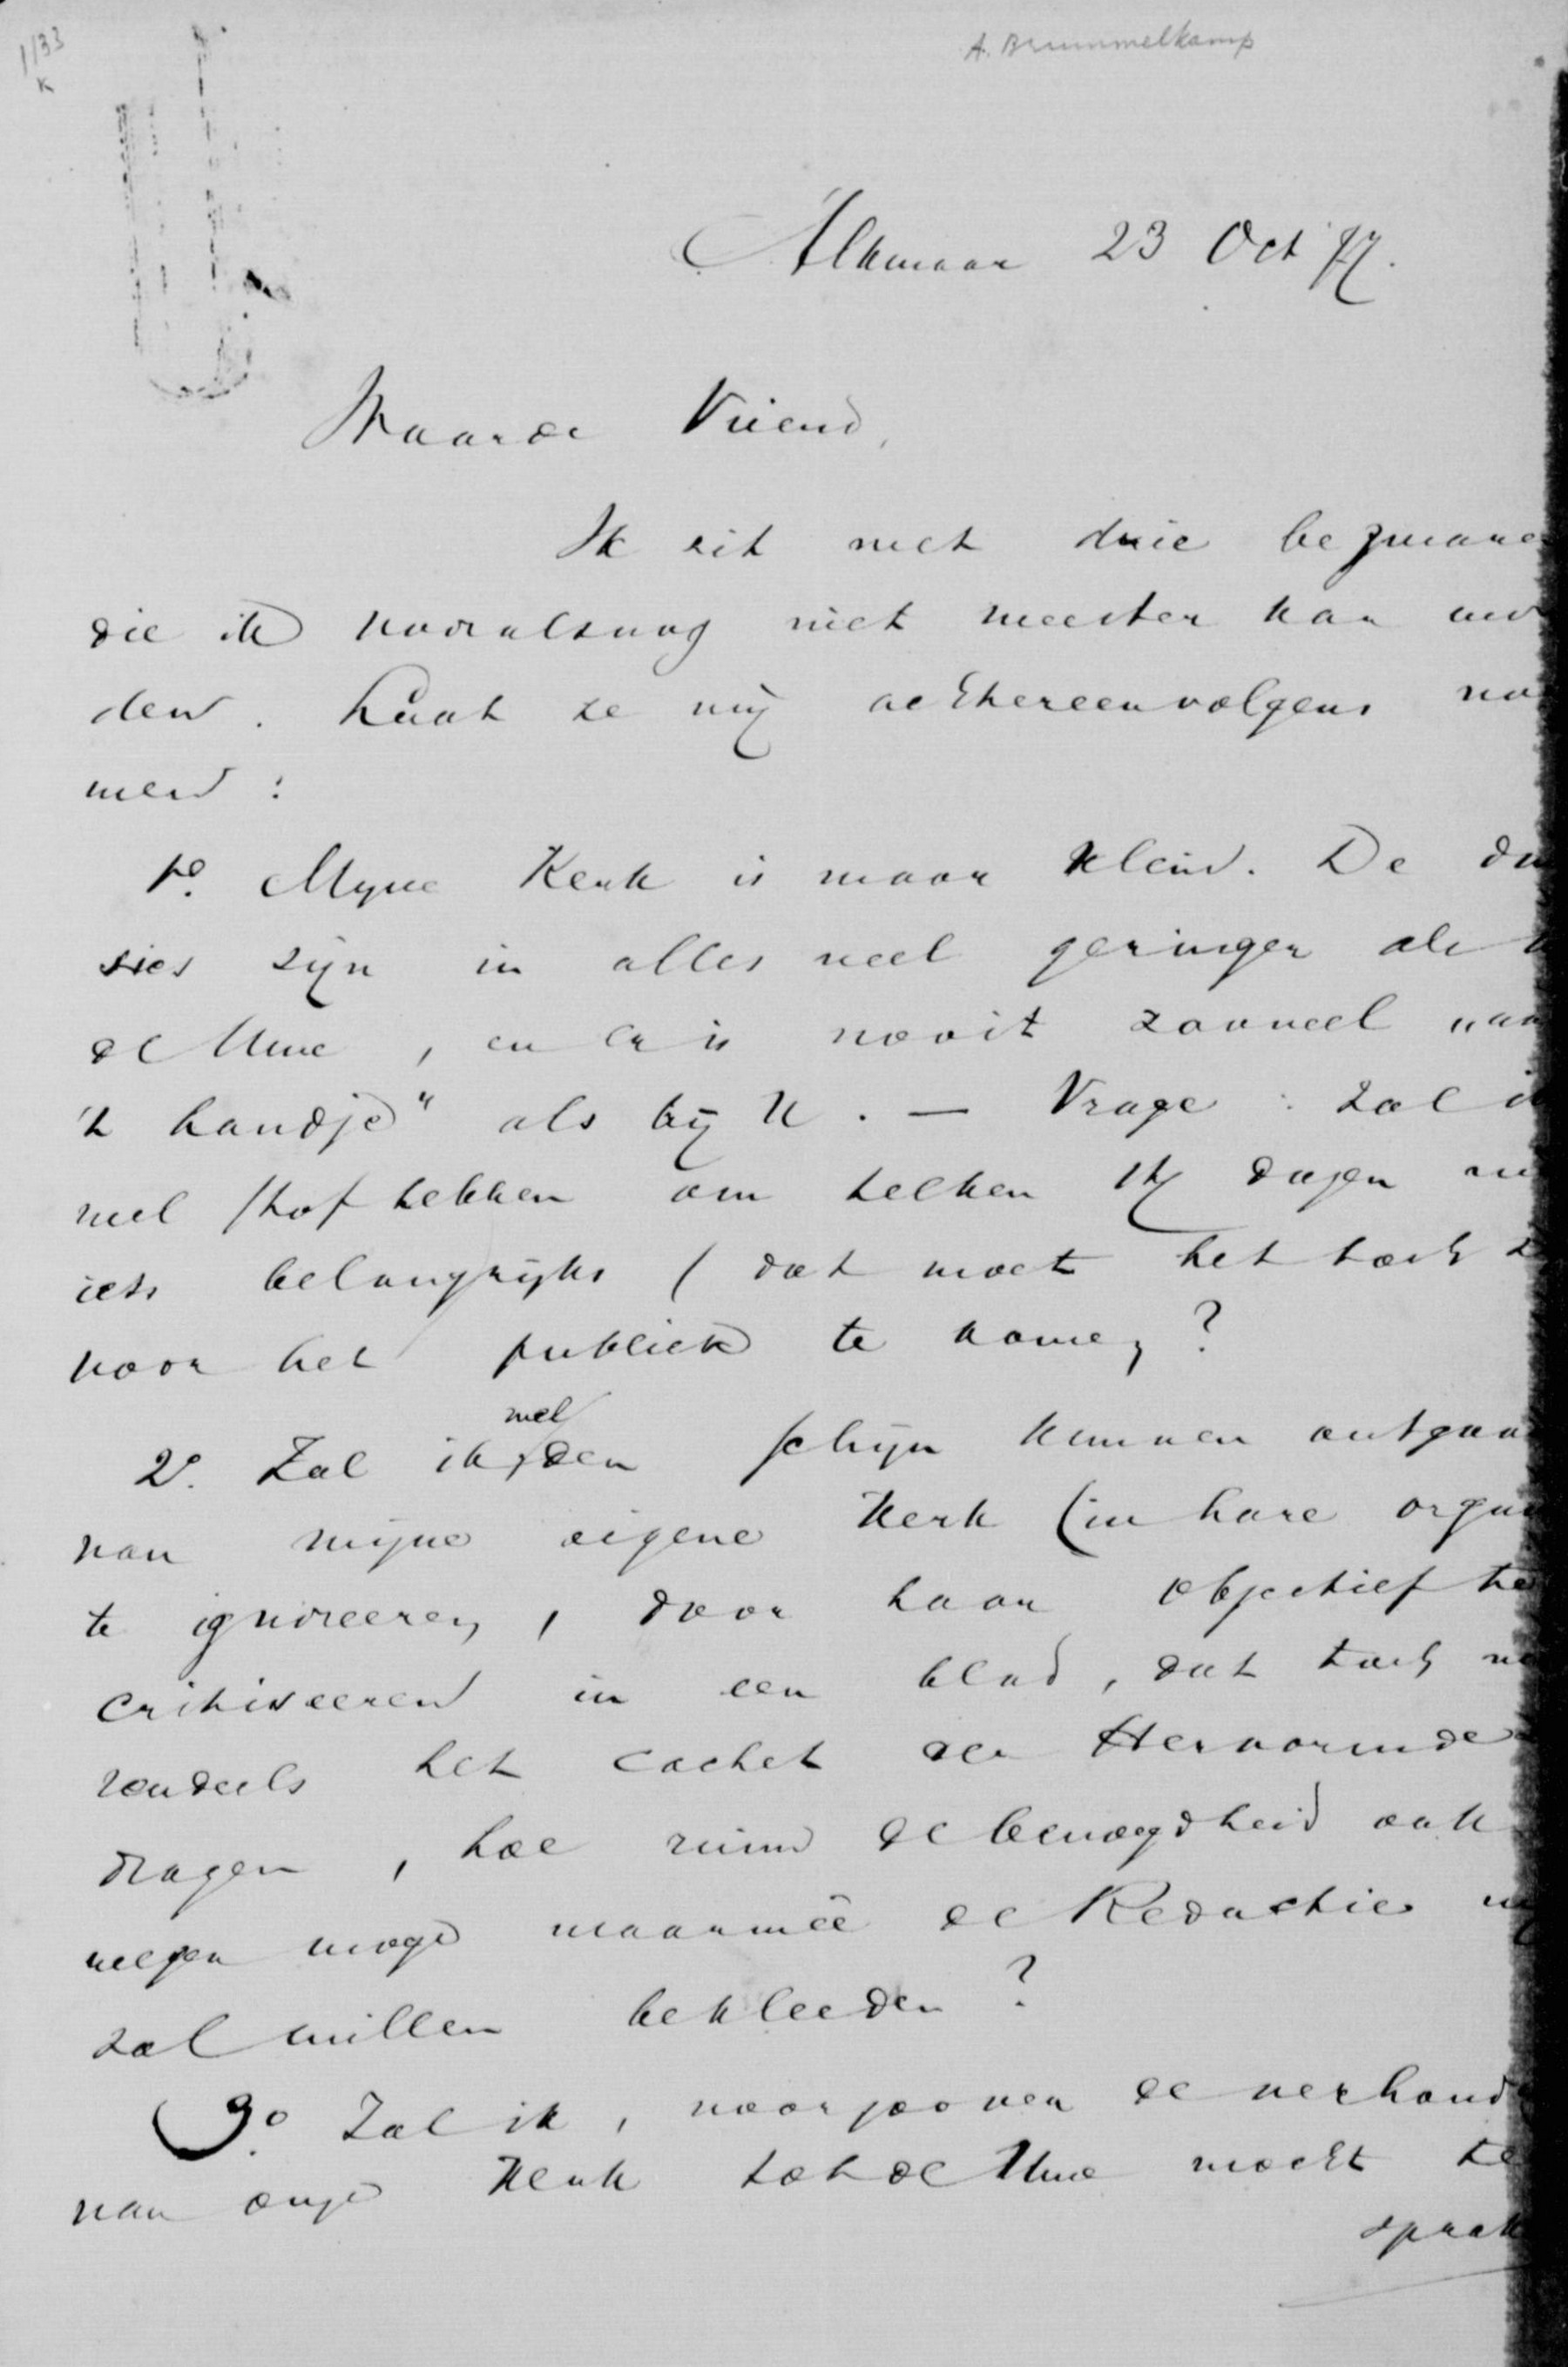 1/33
K
A. Brummelkamp
Alkmaar 23 Oct 77.
Waarde Vriend,
Ik zit met drie bezware
die ik vooralsnog niet meester kan wor
den. Laat ze mij achtereenvolgens no
men :
1o. Myne Kerk is maar klein. De du
sies zijn in alles veel geringer als
de Uwe, en er is nooit zooveel „aan
't handje" als bij U. — Vrage : zal i
wel stof hebben om telken 14 dagen m
iets belangrijks ( dat moet het toch z
voor het publiek te komen?
2o. Zal ik wel den schijn kunnen ontgaa
van mijne eigene Kerk (in hare orga
te ignoreeren, door haar objectief te
critiseeren in een blad, dat toch
zondeels het cachet der Hervormde
dragen, hoe ruim de bevoegdheid ook
wezen moge waarmêe de Redactie m
zal willen bekleeden ?
3o. Zal ik, voorzoover de verhoud
van onze Kerk tot de Uwe mocht te
sprak